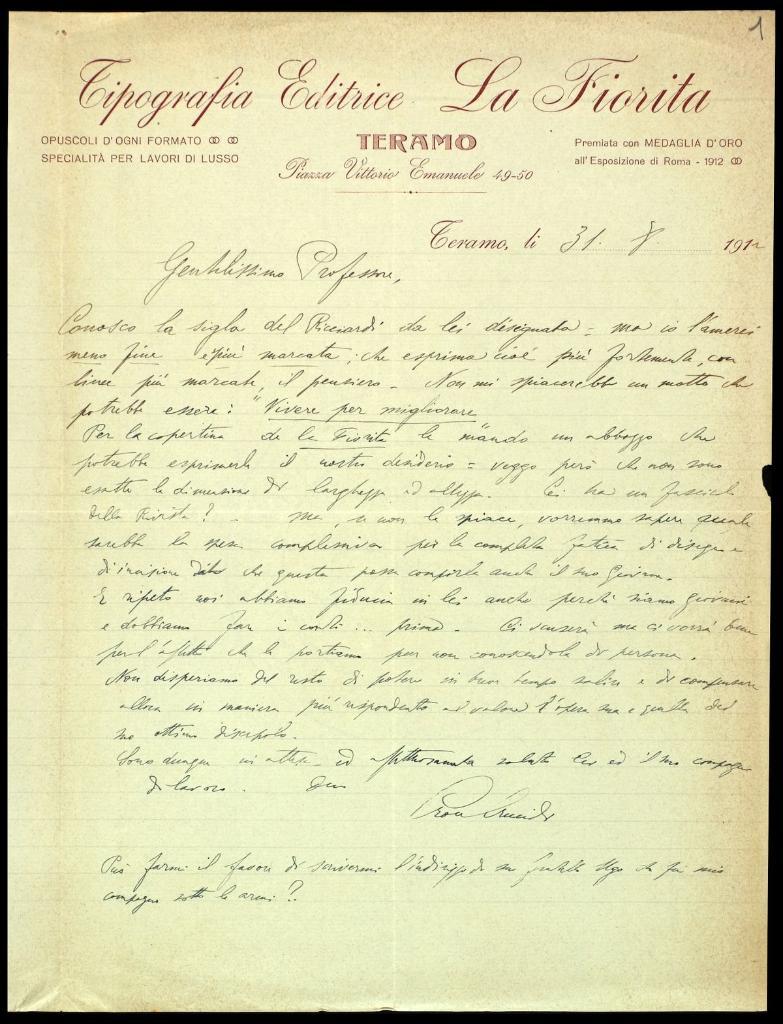 1
Tipografia Editrice La Fiorita
OPUSCOLI D'OGNI FORMATO
SPECIALITÀ PER LAVORI DI LUSSO
TERAMO
Piazza Vittorio Emanuele 49-50
Premiata con MEDAGLIA D'ORO
all'Esposizione di Roma - 1912
Teramo, li 31. 8. 1912
Gentilissimo Professore,
Conosco la sigla del Ricciardi da lei disegnata = ma io l'amerei
meno fine e più marcata; che esprima cioè più fortemente, con
linee più marcate, il pensiero - Non mi spiacerebbe un motto che
potrebbe essere: "Vivere per migliorare
Per la copertina de la Fiorita le mando un abbozzo che
potrebbe esprimerle il nostro desiderio = veggo però che non sono
esatte le dimensioni di larghezza ed altezza. Lei ha un fascicolo
della Rivista? - ma, se non le spiace, vorremmo sapere quale
sarebbe la spesa complessiva per la completa fatica di disegno e
di incisione dato che questa possa compirla anche il suo Giovane.
E ripeto noi abbiamo fiducia in lei anche perchè siamo giovani
e dobbiamo fare i conti ... prima - Ci scuserà ma ci vorrà bene
per l'affetto che le portiamo pur non conoscendola di persona.
Non disperiamo del resto di potere in buon tempo salire e di compensare
allora in maniera più rispondente al valore l'opera sua e quella del
suo ottimo discepolo.
Sono dunque in attesa ed affettuosamente saluto Lei ed il suo compagno
di lavoro. Suo
Può farmi il favore di scrivermi l'indirizzo di suo fratello Ugo che fu mio
compagno sotto le armi?